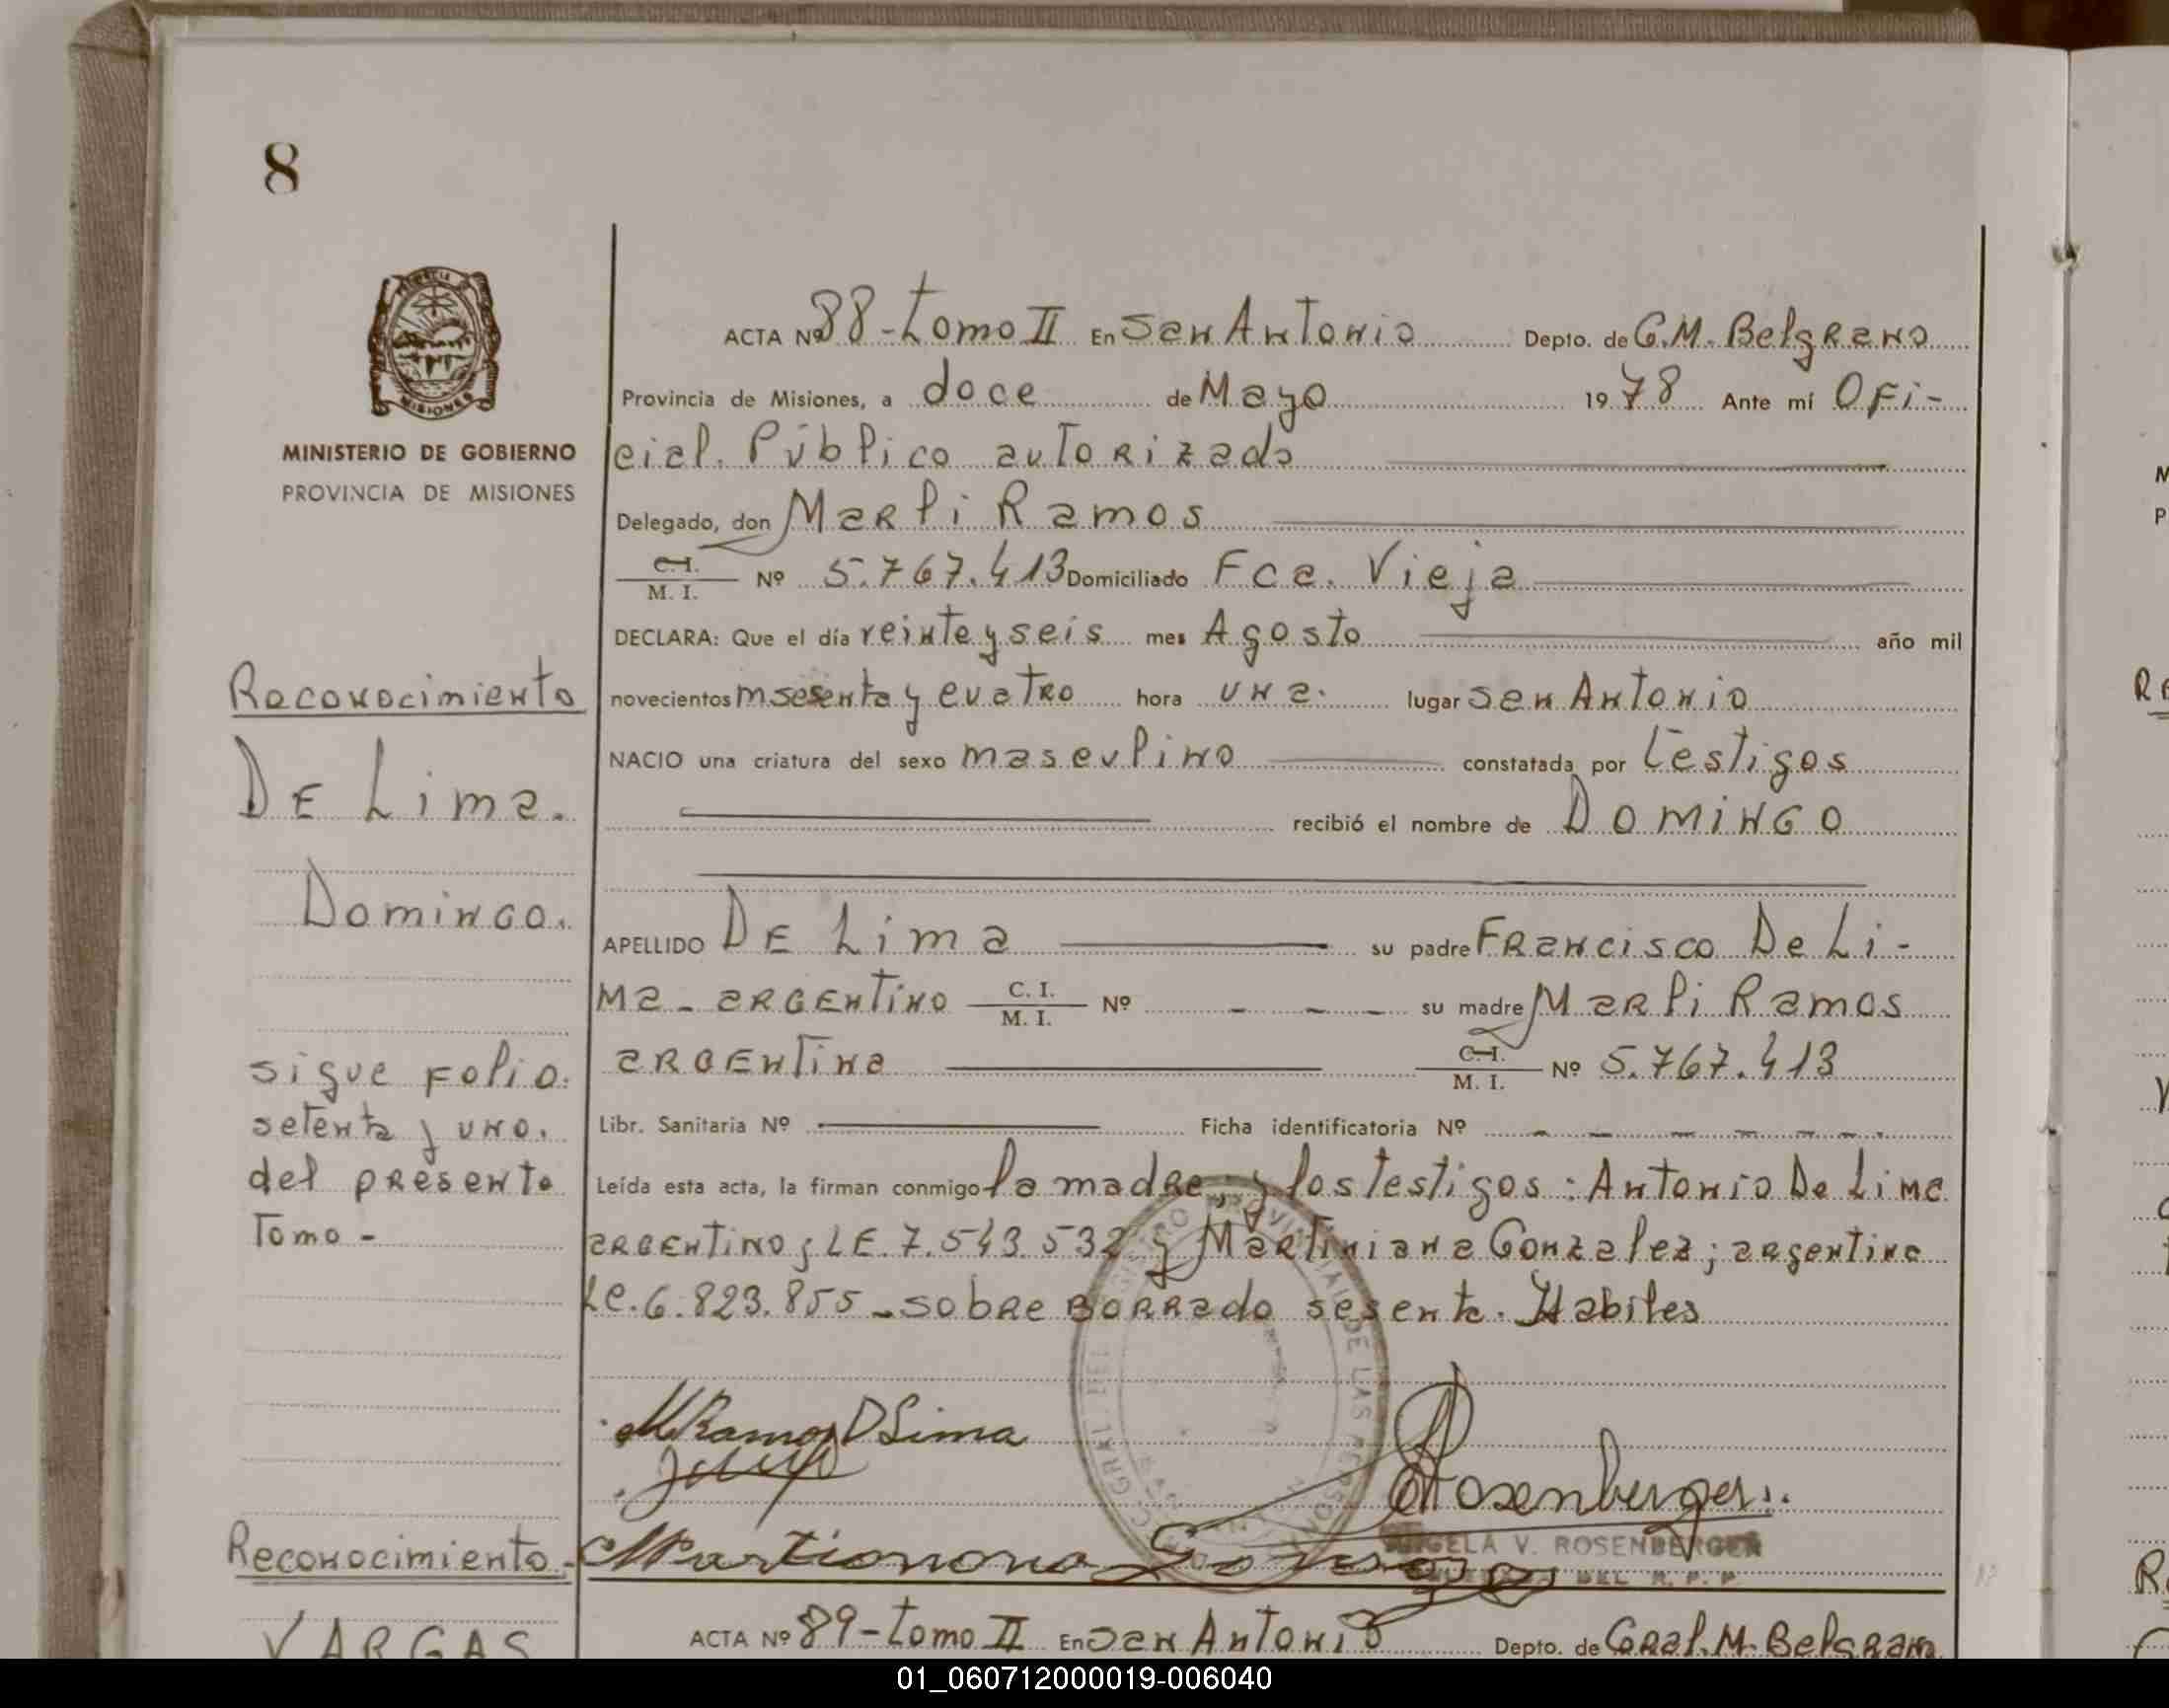 8
MINISTERIO DE GOBIERNO
PROVINCIA DE MISIONES
ACTA Nº 88 - Tomo II En San Antonio Depto. de G.M. Belgrano
Provincia de Misiones, a doce de Mayo 1978 Ante mí Ofi-
cial Público autorizado
Delegado, don Marli Ramos
C.I. / M. I. Nº 5.767.413 Domiciliado Fca. Vieja
DECLARA: Que el día veinte y seis mes Agosto año mil
novecientos sesenta y cuatro hora una. lugar San Antonio
NACIO una criatura del sexo masculino constatada por Testigos
recibió el nombre de DOMINGO
APELLIDO DE Lima su padre Francisco De Li-
ma - argentino C. I. / M. I. Nº - - - su madre Marli Ramos
argentina C.I. / M. I. Nº 5.767.413
Libr. Sanitaria Nº Ficha identificatoria Nº - - - - - -
Leída esta acta, la firman conmigo la madre, y los testigos: Antonio De Lima
argentino; LE. 7.543.532 y Martiniana Gonzalez; argentina
Lc. 6.823.855 - sobre Borrado sesenta. Habiles
Reconocimiento
DE Lima.
Domingo.
sigue folio
setenta y uno.
del presente
Tomo -
M Ramos D Lima
Rosenberger
ANGELA V. ROSENBERGER
DEL R. P. P.
Reconocimiento -
VARGAS
ACTA Nº 89 - Tomo II En San Antonio Depto. de Gral. M. Belgran
01_060712000019-006040